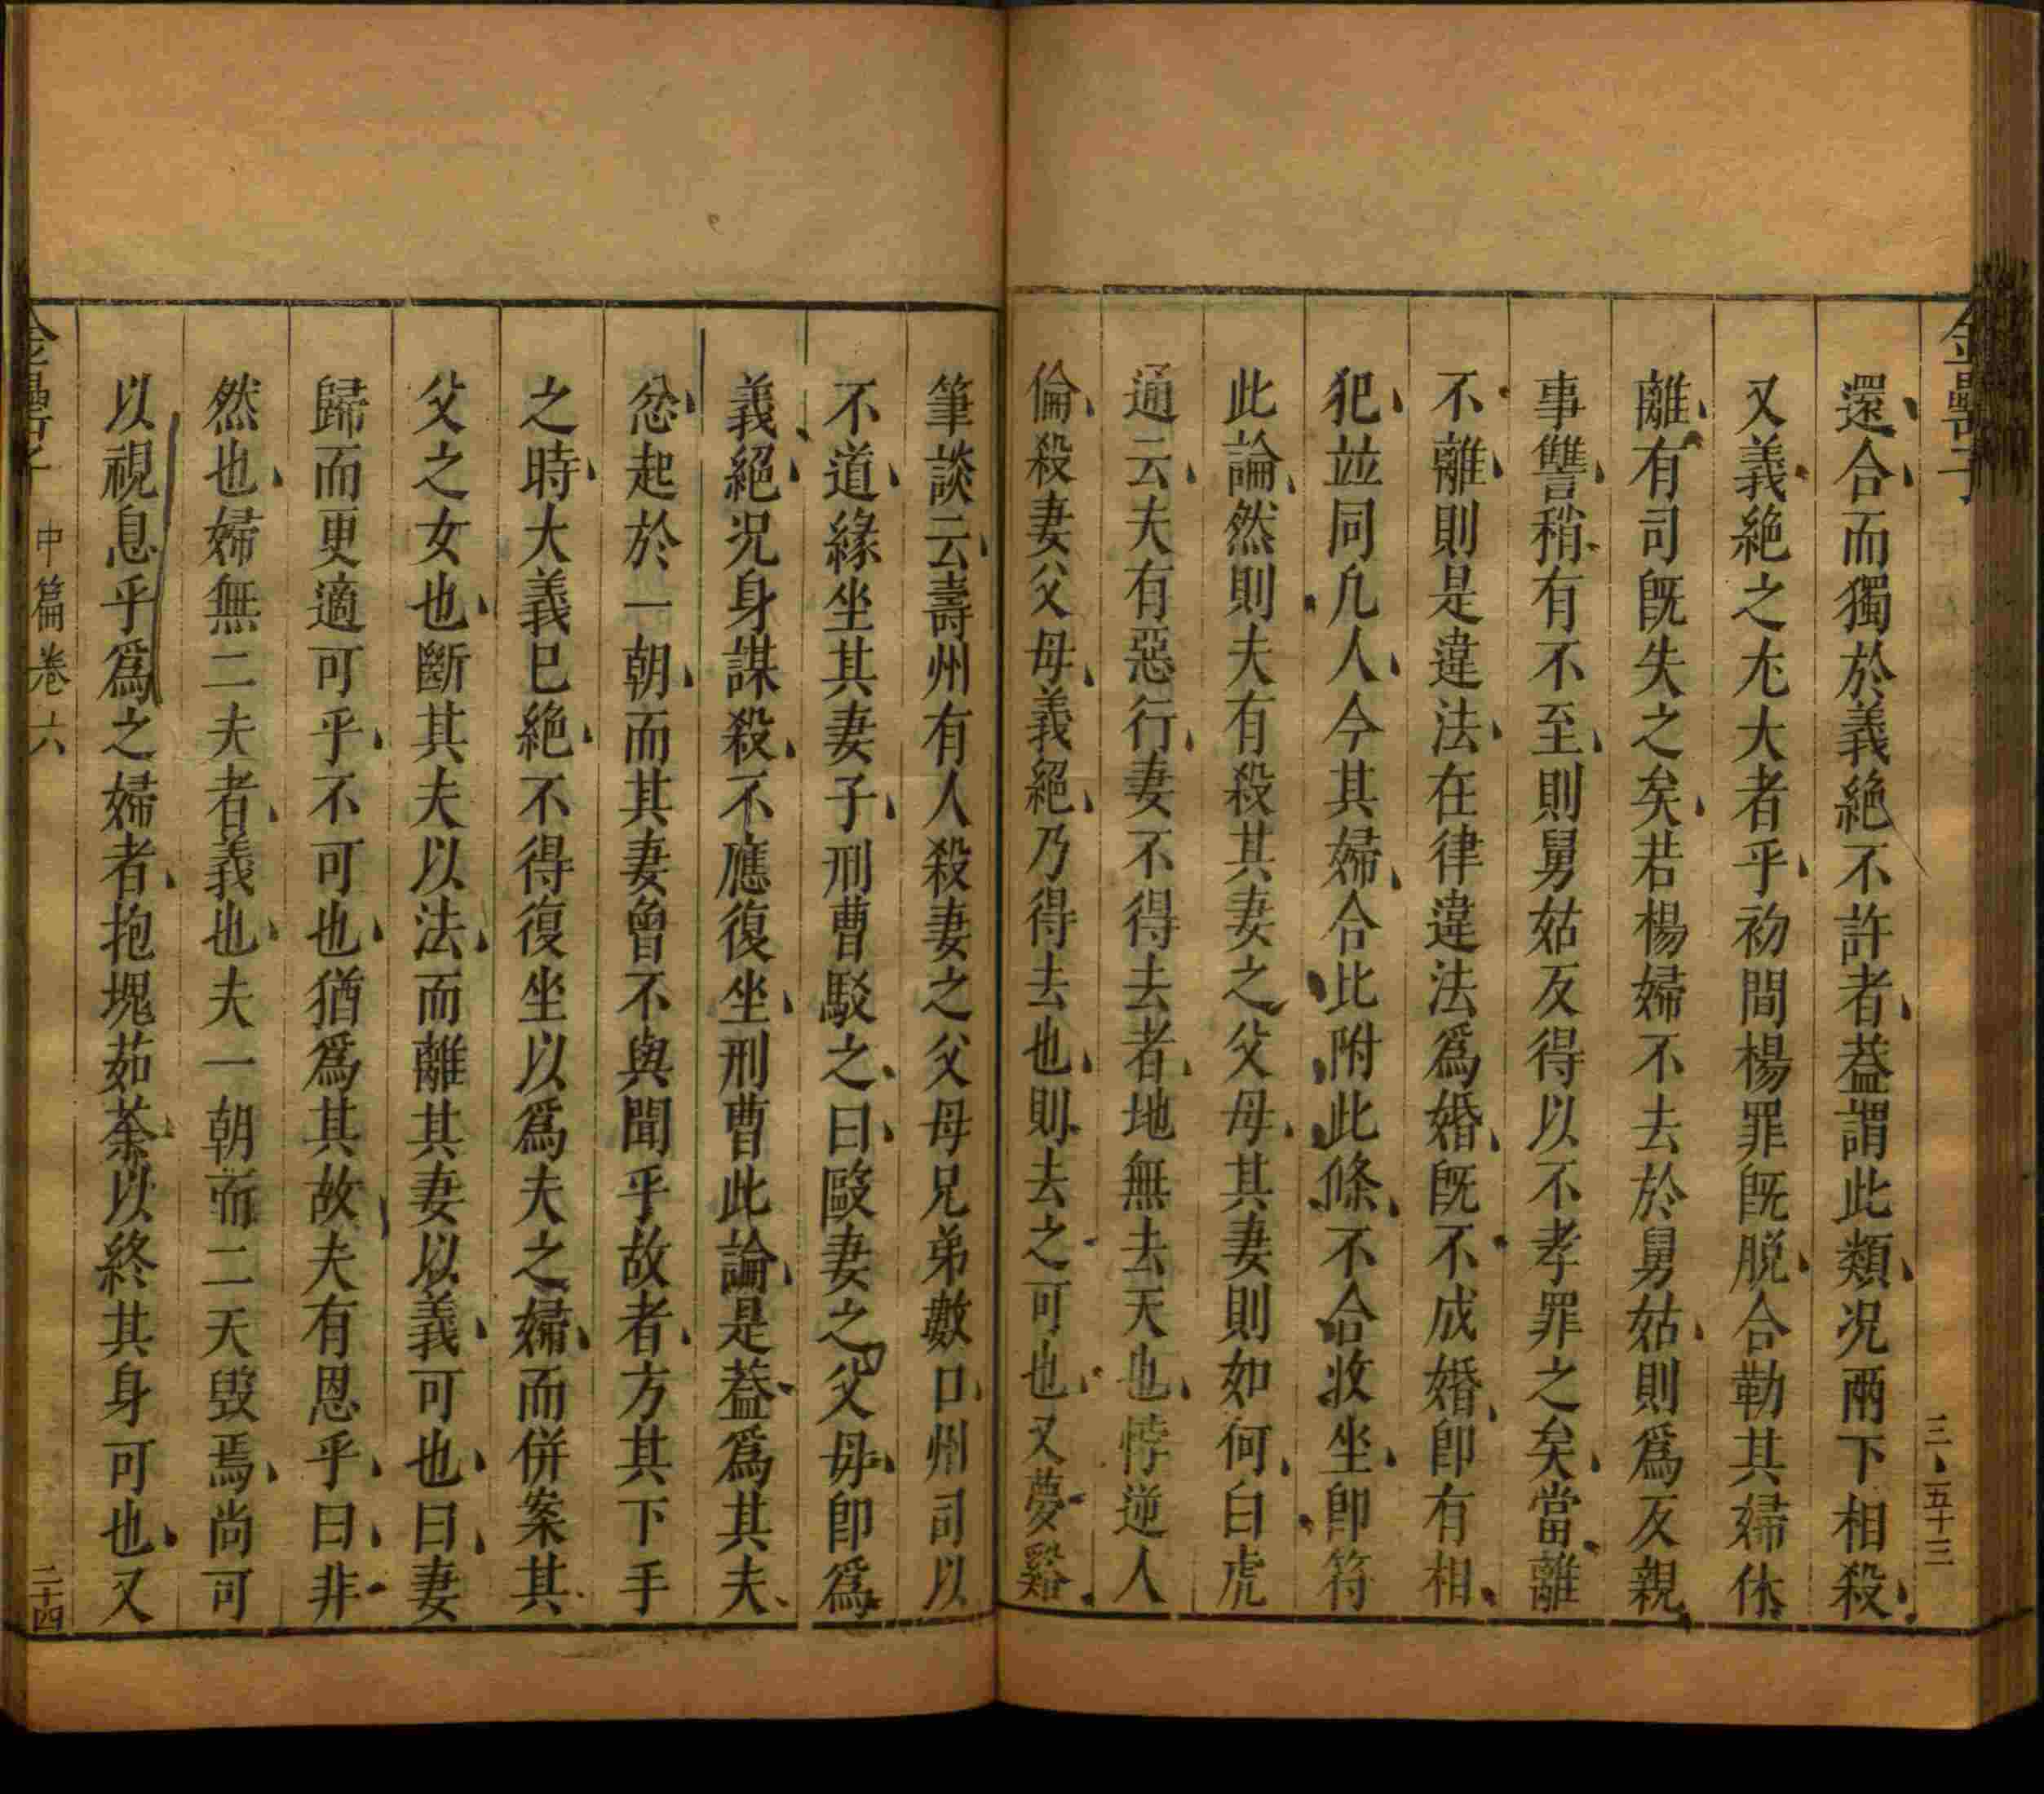 金罍子
三五十三
還合而獨於義絕不許者葢謂此類况兩下相殺
又義絕之尤大者乎初間楊罪旣脱合勒其婦休
離有司旣失之矣若楊婦不去於舅姑則爲反親
事讐稍有不至則舅姑反得以不孝罪之矣當離
不離則是違法在律違法爲婚旣不成婚卽有相
犯並同凡人今其婦合比附此條不合收坐卽符
此論然則夫有殺其妻之父母其妻則如何白虎
通云夫有惡行妻不得去者地無去天也悖逆人
倫殺妻父母義絕乃得去也則去之可也又夢谿
筆談云壽州有人殺妻之父母兄弟數口州司以
不道緣坐其妻子刑曹駁之曰毆妻之父母卽爲
義絕况身謀殺不應復坐刑曹此論是葢爲其夫
忿起於一朝而其妻曾不與聞乎故者方其下手
之時大義巳絕不得復坐以爲夫之婦而併案其
父之女也斷其夫以法而離其妻以義可也曰妻
歸而更適可乎不可也猶爲其故夫有恩乎曰非
然也婦無二夫者義也夫一朝而二天毀焉尚可
以視息乎爲之婦者抱塊茹荼以終其身可也又
金罍子
中篇卷六
二十四